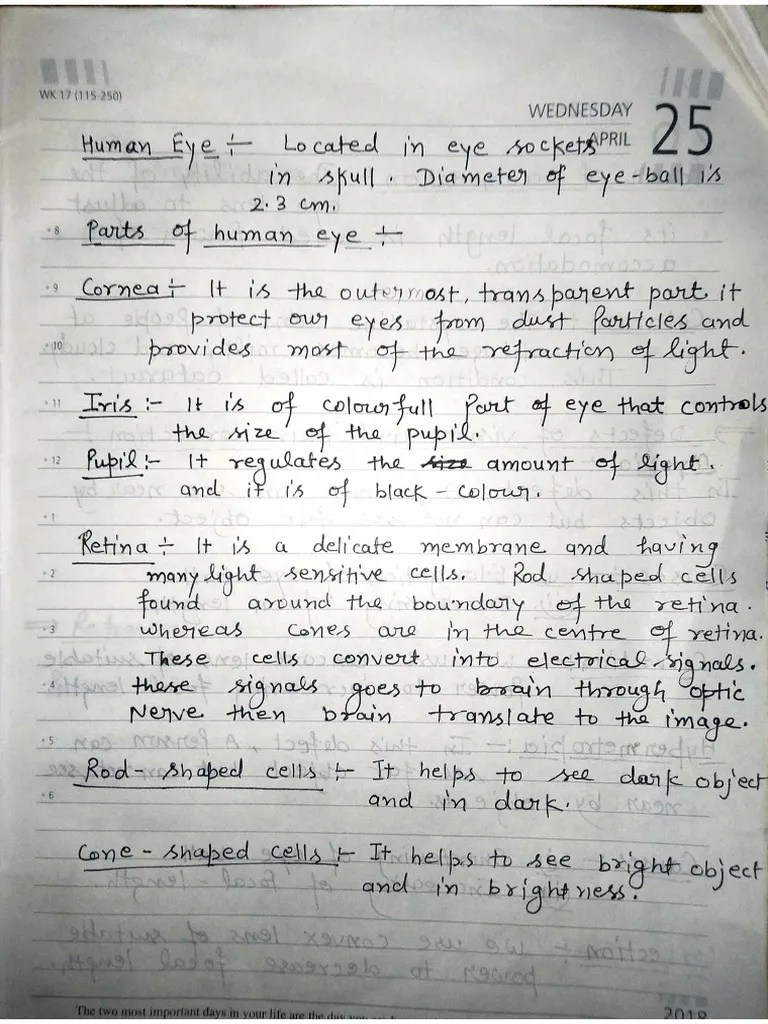 WK 17 (115-250)
WEDNESDAY
APRIL 25
Human Eye :- Located in eye sockets
in skull. Diameter of eye-ball is
2.3 cm.
8 Parts of human eye :-
9 Cornea :- It is the outermost, transparent part it
protect our eyes from dust Particles and
10 provides most of the refraction of light.
11 Iris :- It is of colourfull Part of eye that controls
the size of the pupil.
12 Pupil :- It regulates the size amount of light.
and it is of black-colour.
1
Retina :- It is a delicate membrane and having
2 many light sensitive cells. Rod shaped cells
found around the boundary of the retina.
3 whereas cones are in the centre of retina.
These cells convert into electrical signals.
4 these signals goes to brain through optic
Nerve then brain translate to the image.
5
Rod-shaped cells :- It helps to see dark object
6 and in dark.
Cone-shaped cells :- It helps to see bright object
and in brightness.
The two most important days in your life are the day you are
2018